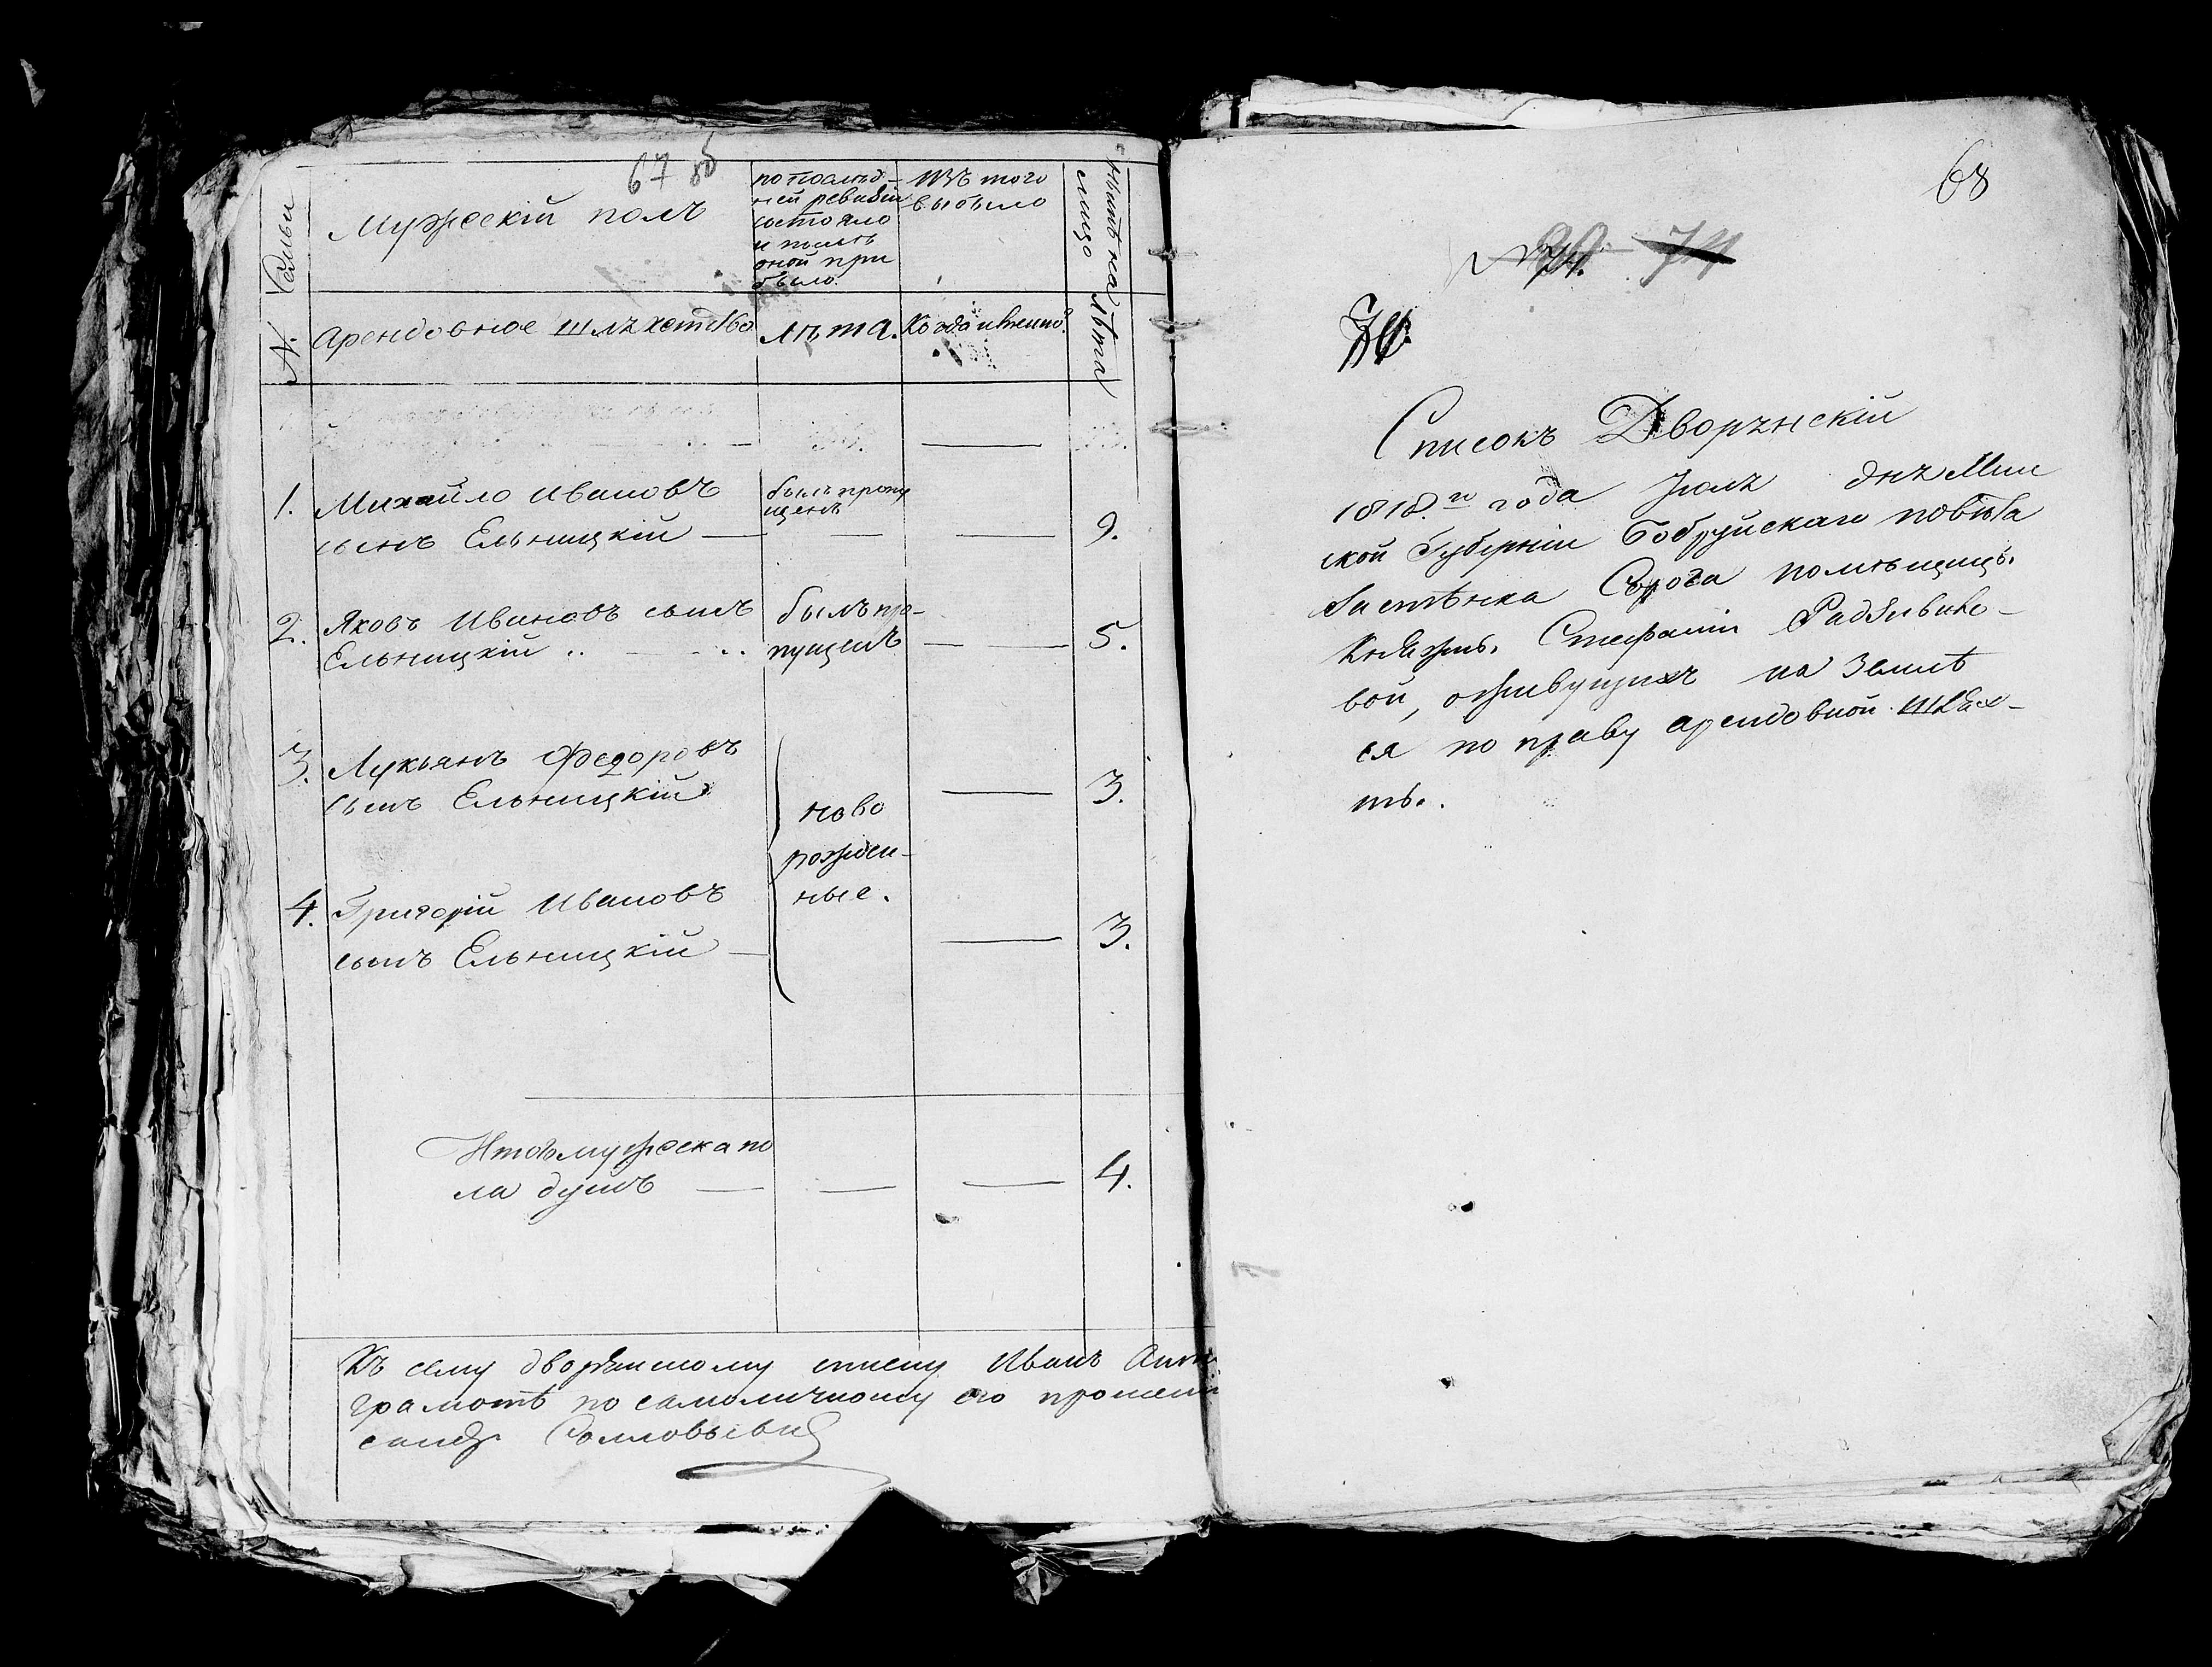 67 об
№ Семьи
Мужескій полъ
по послѣд-
ней ревизіи
состояло
и послѣ
оной при
было.
Изъ того
выбыло
Нынѣ на
лицо
Арендовное Шляхетство
лѣта.
Когда именно?
лѣта
1. Михайло Ивановъ
былъ пропу
щенъ
сынъ Ельницкій — — — 9.
2. Яковъ Ивановъ сынъ
былъ про-
Ельницкій .. — ..
пущенъ — — 5.
3. Лукьянъ Федоровъ
сынъ Ельницкій — 3.
ново
рожден-
ные.
4. Григорій Ивановъ
сынъ Ельницкій — — 3.
Итого мужеска по
ла душъ — — — 4.
Къ сему дворянскому списку Иванъ
грамотѣ по самоличному его
68
74
Списокъ Дворянскій
1818го года Іюля дня Мин
ской Губерніи Бобруйскаго повѣта
Застѣнка помѣщицы
Княжны Стефаніи Радзивило-
вой, о живущихъ на землѣ
ея по праву арендовной шлях-
ты.